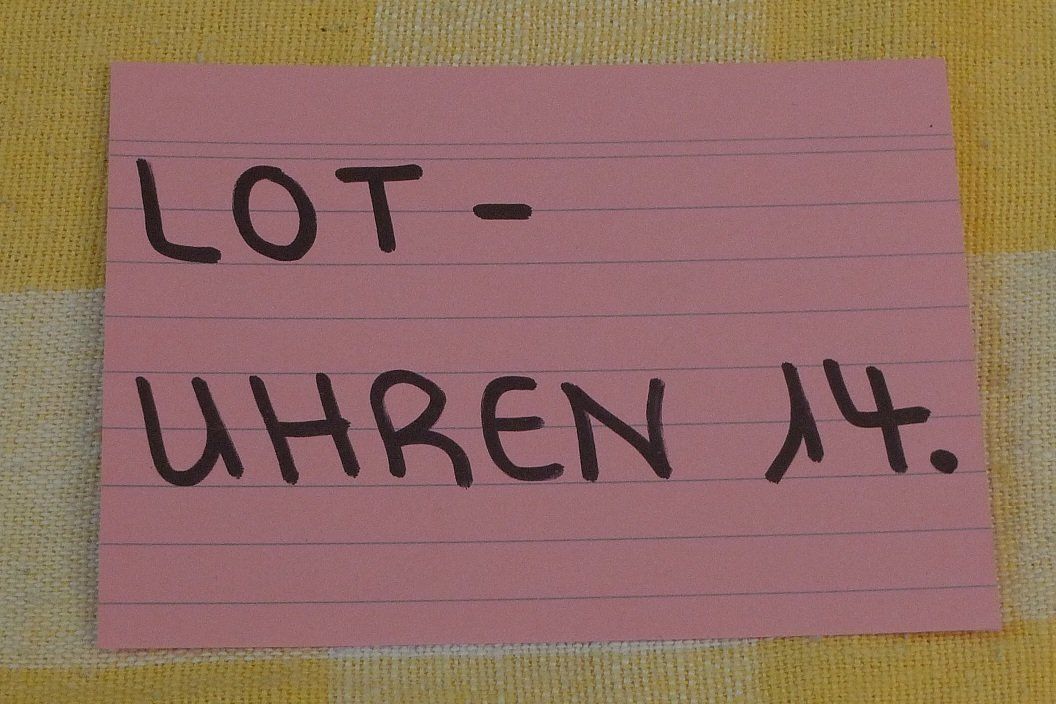 LOT-
UHREN 14.